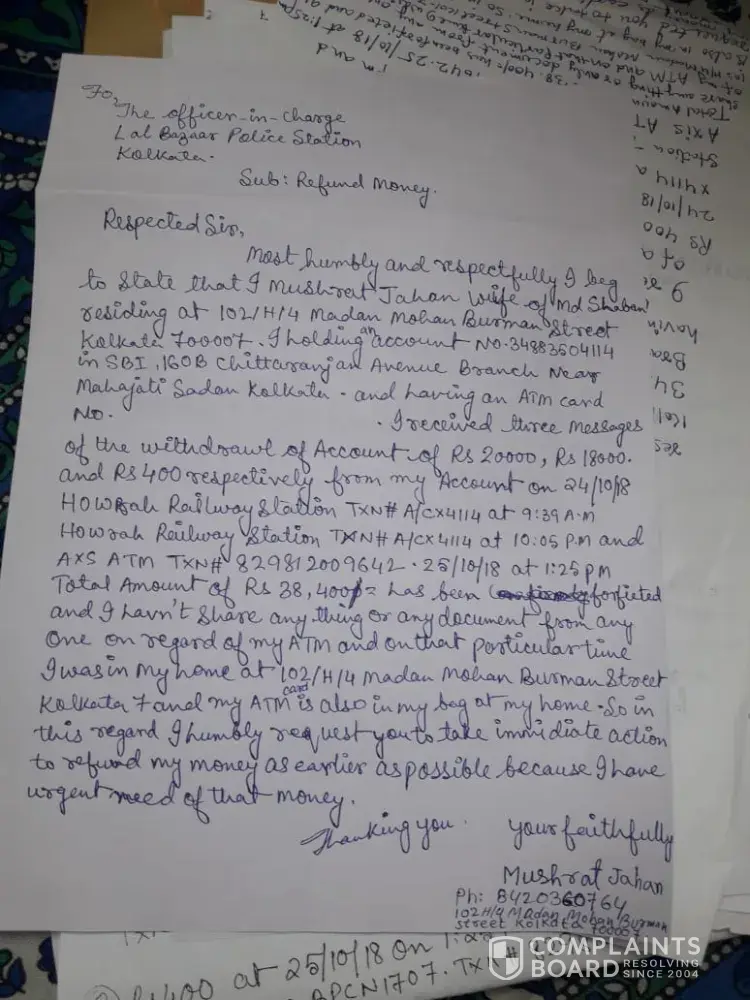 For,
The officer-in-charge
Lal Bazaar Police Station
Kolkata.
Sub: Refund Money.
Respected Sir,
Most humbly and respectfully I beg
to state that I Mushrat Jahan wife of Md Shaban
residing at 102/H/4 Madan Mohan Burman Street
Kolkata 700007. I holding an account No. 34883604114
in SBI, 160B Chittaranjan Avenue Branch Near
Mahajati Sadan Kolkata. and having an ATM card
No. . I received three Messages
of the withdrawl of Account of Rs 20000, Rs 18000.
and Rs 400 respectively from my Account on 24/10/18
HOWRah Railway Station TXN# A/CX4114 at 9:39 A.M
Howrah Railway Station TXN# A/CX4114 at 10:05 P.M and
AXS ATM TXN# 829812009642. 25/10/18 at 1:25 PM
Total Amount of Rs 38,400/= has been forfieted
and I havn't share any thing or any document from any
one on regard of my ATM and on that particular time
I was in my home at 102/H/4 Madan Mohan Burman Street
Kolkata 7 and my ATM card is also in my bag at my home. So in
this regard I humbly request you to take immidiate action
to refund my money as earlier as possible because I have
urgent need of that money.
Thanking you. your faithfully
Mushrat Jahan
Ph: 8420360764
102H/4 Madan Mohan Burman
street Kolkata 700007
400 at 25/10/18 On
APCN1707. TXN#
COMPLAINTS
BOARD RESOLVING
SINCE 2004